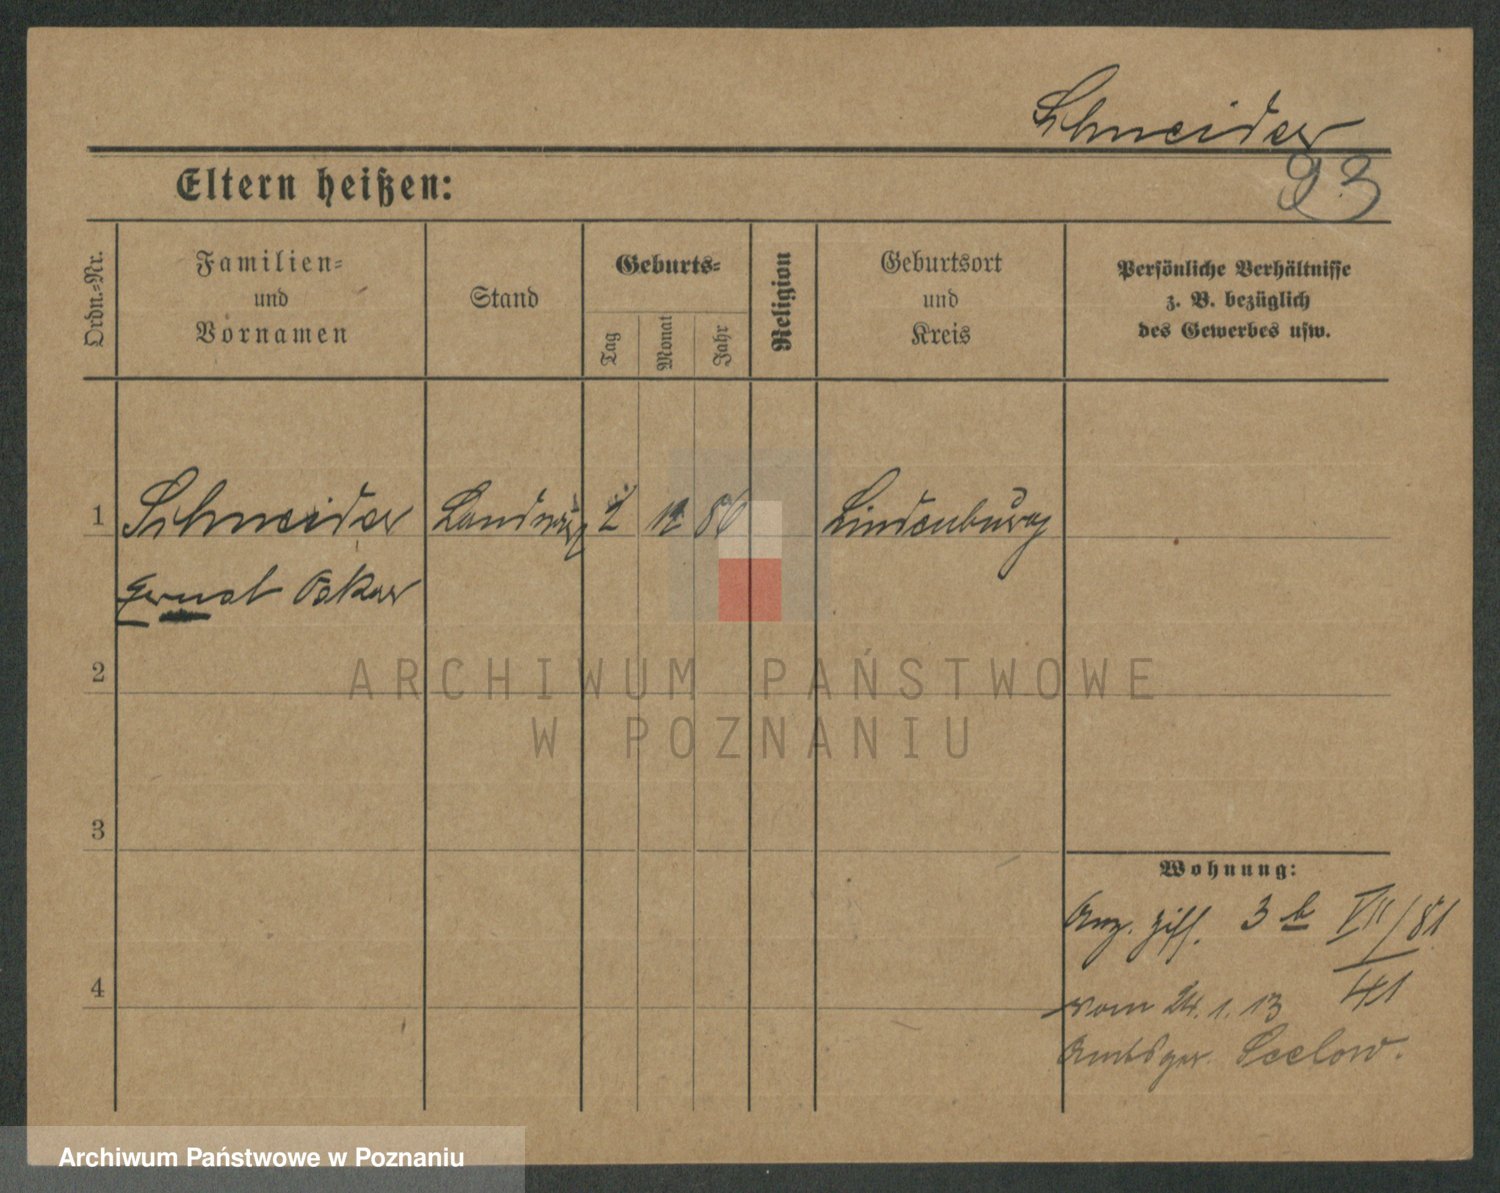 Schneider
93
Eltern heißen:
Ordn.-Nr.
Familien-
und
Vornamen
Stand
Geburts-
Tag
Monat
Jahr
Religion
Geburtsort
und
Kreis
Persönliche Verhältnisse
z. B. bezüglich
des Gewerbes usw.
1 Schneider Landwirt 2 12 80 Lindenburg
Ernst Oskar
2
ARCHIWUM PAŃSTWOWE
W POZNANIU
3
Wohnung:
Anz. Ziff. 3 b VII/81
41
4
vom 24. 1. 13
Amtsger. Seelow.
Archiwum Państwowe w Poznaniu